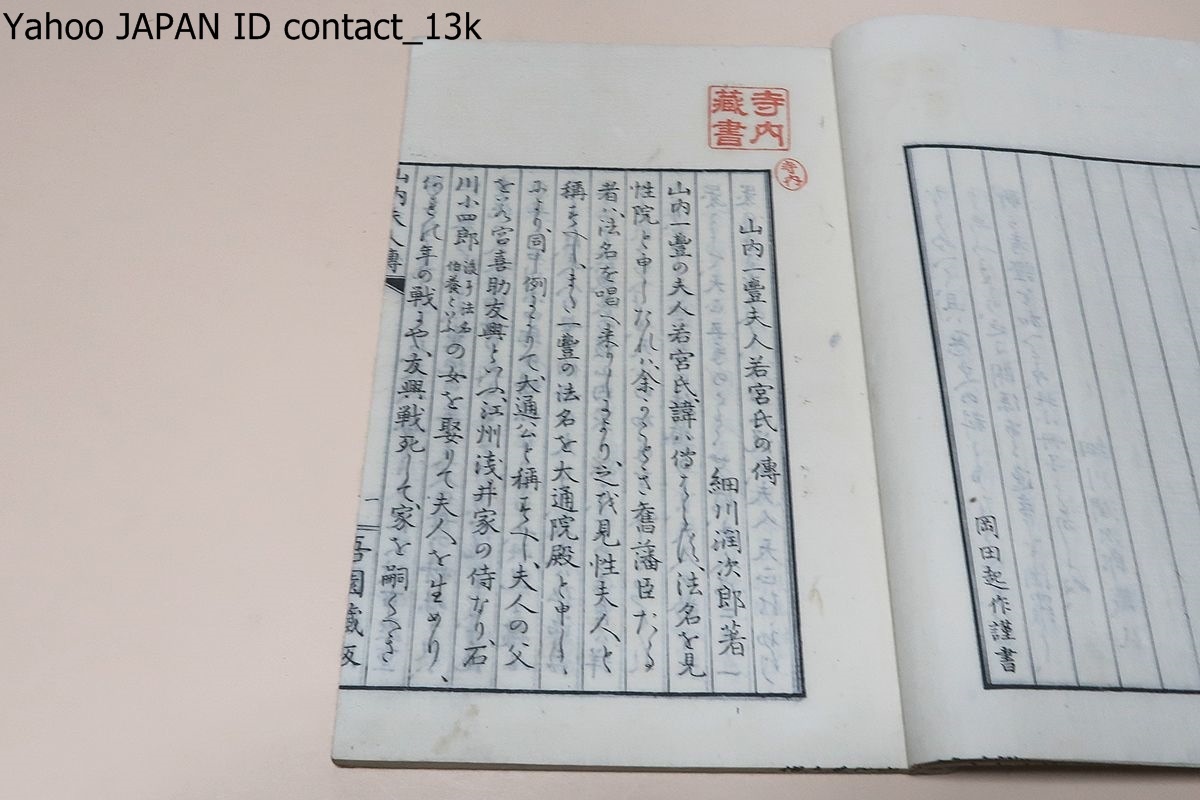 Yahoo JAPAN ID contact_13k
岡田起作謹書
寺内
藏書
寺内
山内一豐夫人若宮氏の傳
細川潤次郎著
山内一豐の夫人、若宮氏、諱ハ傳はらす、法名を見
性院と申しゝなれハ、余のことき舊藩臣たる
者ハ、法名を唱へ来りしより、之を見性夫人と
稱すへし、また一豐の法名を大通院殿と申しゝ
により、同し例によりて大通公と稱すへし、夫人の父
を若宮喜助友興といへ、江州浅井家の侍なり、石
川小四郎後号法名伯養といふの女を娶りて夫人を生めり、
何れの年の戦にや、友興戦死して家を嗣くへき
山内夫人傳
一
吾園藏版